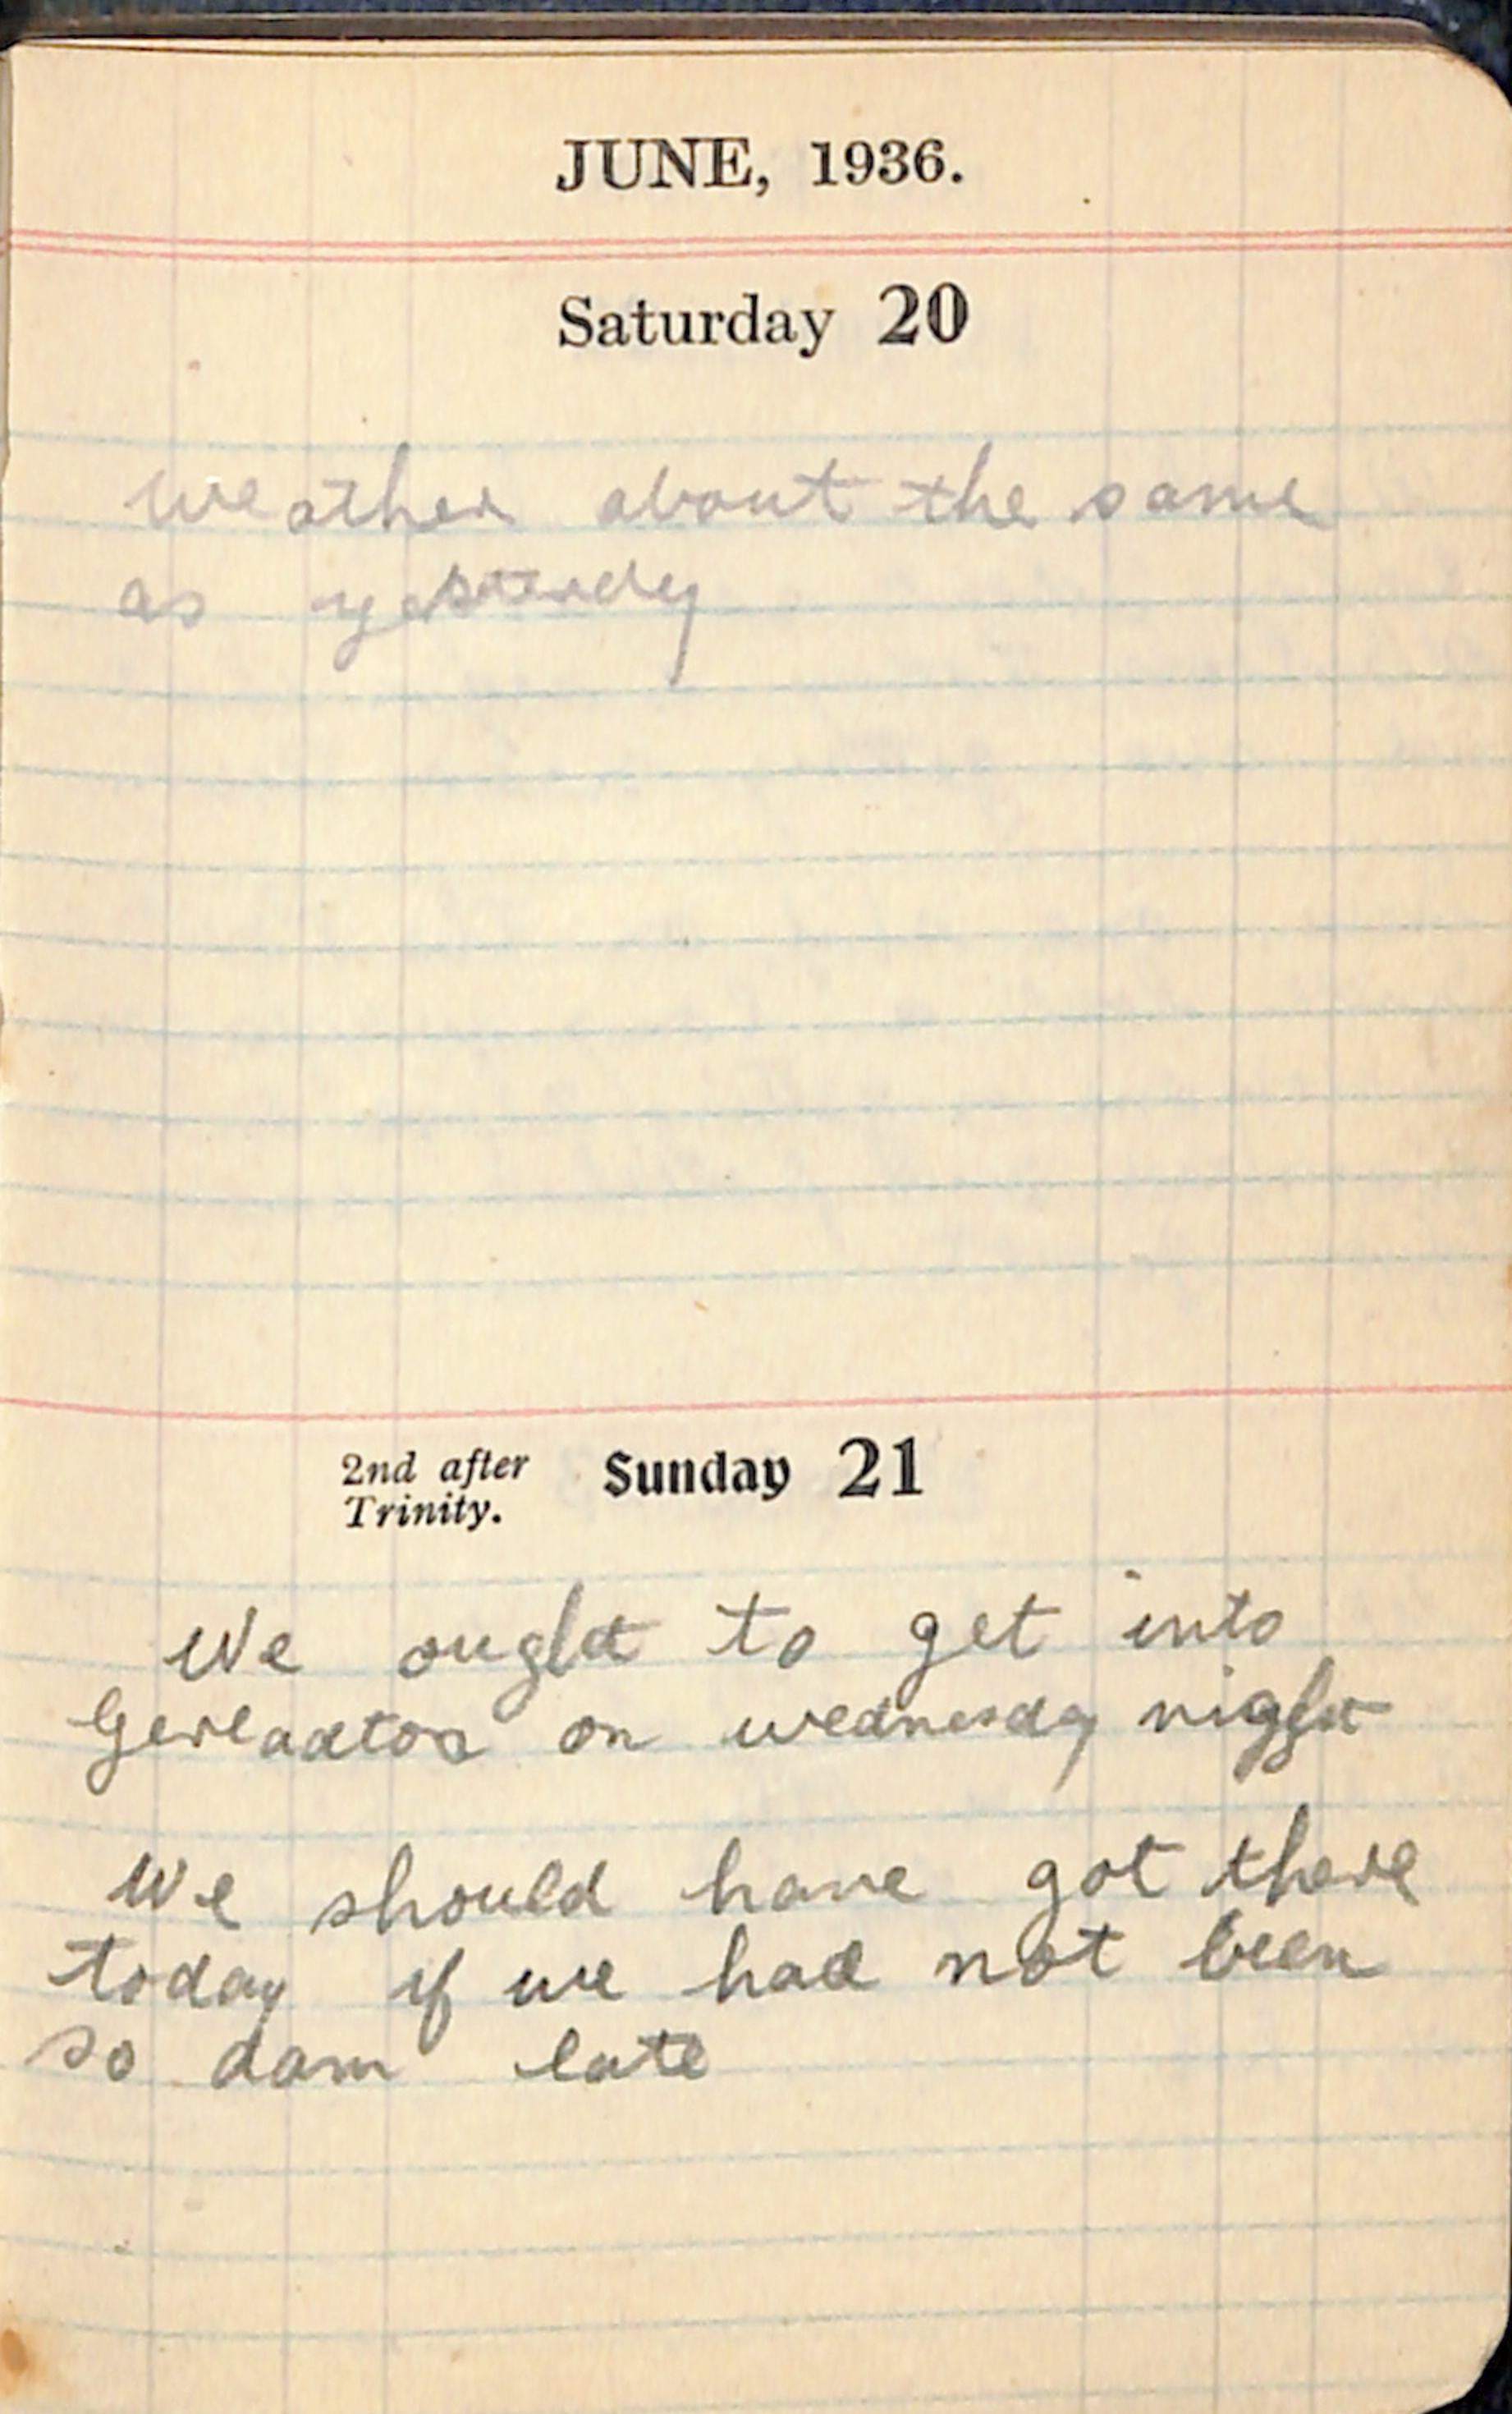 JUNE, 1936.
Saturday 20
weather about the same
as yesterdy
2nd after Trinity. Sunday 21
We ought to get into
on wednesday night
We should have got there
today if we had not been
so dam late